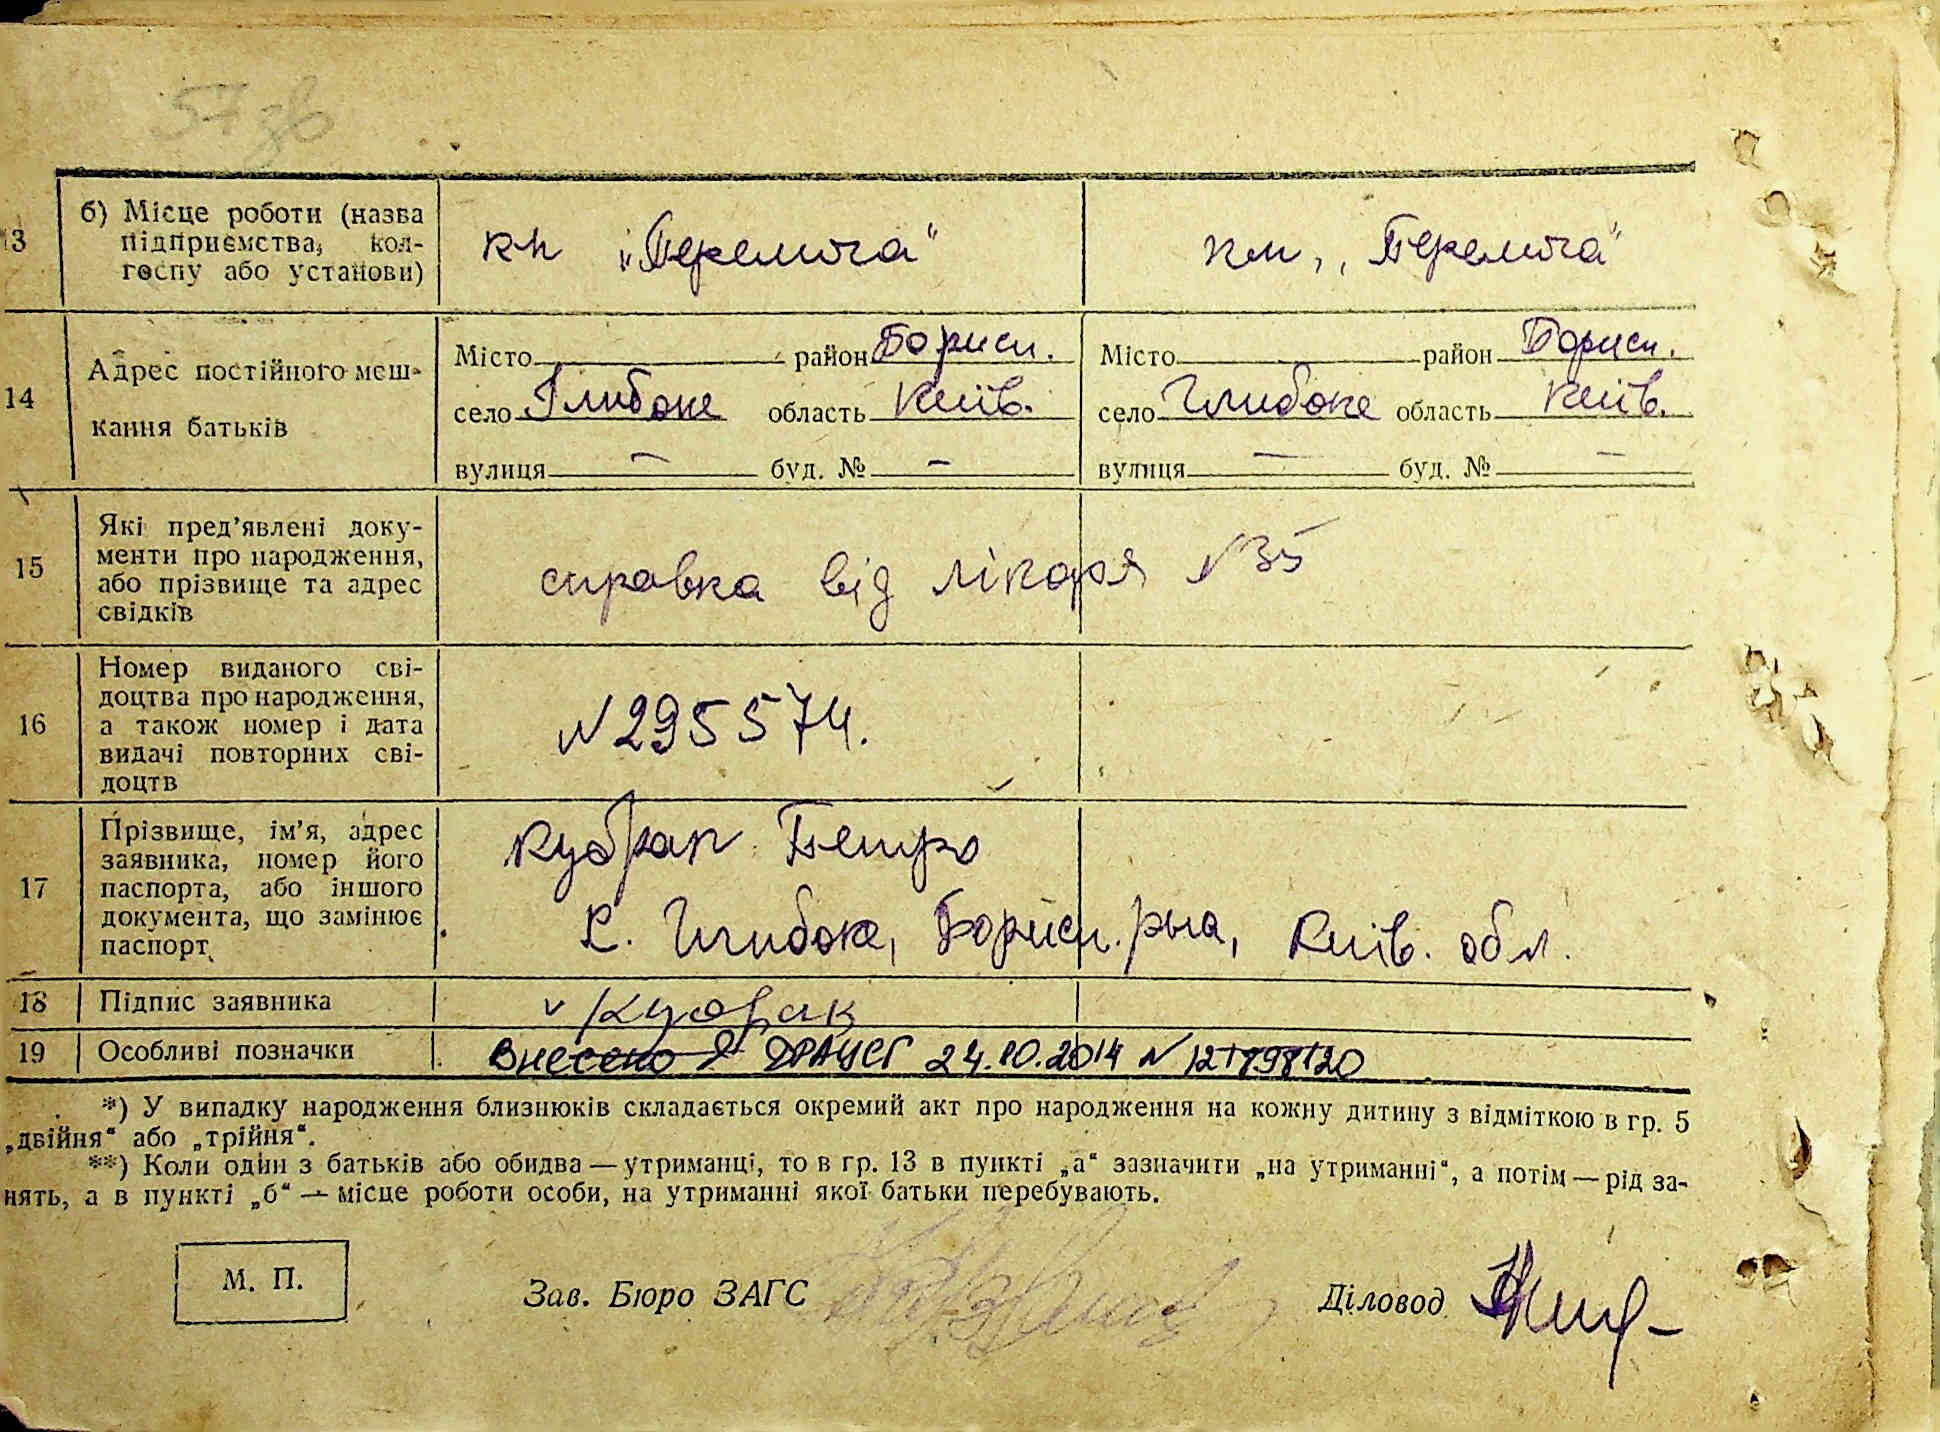 57 зв
13 б) Місце роботи (назва
підприємства, кол-
госпу або установи)
кп „Перемога“ кп, „Перемога“
14 Адрес постійного меш-
кання батьків
Місто район Борисп. Місто район Борисп.
село Глибоке область Київ. село Глибоке область Київ.
вулиця — буд. № — вулиця — буд. № —
15 Які пред’явлені доку-
менти про народження,
або прізвище та адрес
свідків
справка від лікаря N 35
16 Номер виданого сві-
доцтва про народження,
а також номер і дата
видачі повторних сві-
доцтв
N 295574.
17 Прізвище, ім’я, адрес
заявника, номер його
паспорта, або іншого
документа, що замінює
паспорт
Кубрак Петро
с. Глибоке, Борисп. р-на, Київ. обл.
18 Підпис заявника
v Кубрак
19 Особливі позначки
Внесено в ДРАЦСГ 24.10.2014 N
*) У випадку народження близнюків складається окремий акт про народження на кожну дитину з відміткою в гр. 5
„двійня“ або „трійня“.
**) Коли один з батьків або обидва — утриманці, то в гр. 13 в пункті „а“ зазначити „на утриманні“, а потім — рід за-
нять, а в пункті „б“ — місце роботи особи, на утриманні якої батьки перебувають.
М. П.
Зав. Бюро ЗАГС
Діловод